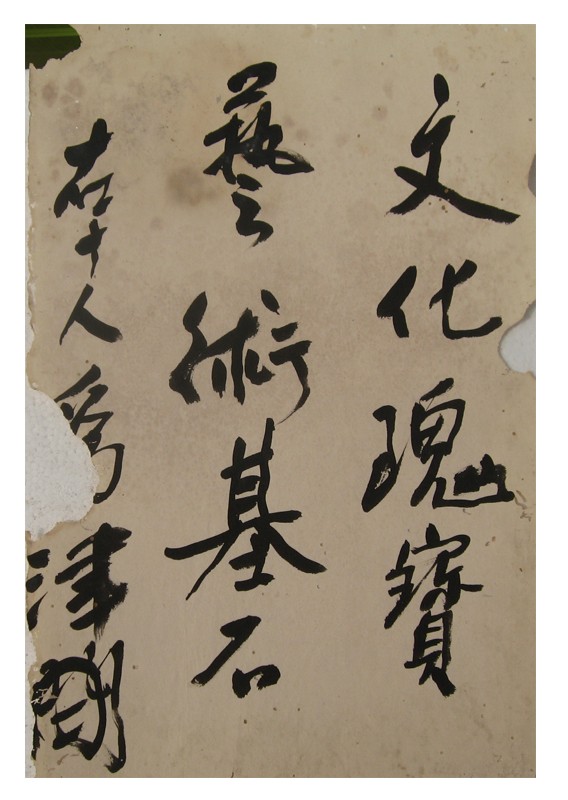 文化瑰寶
藝術基石
十人為津